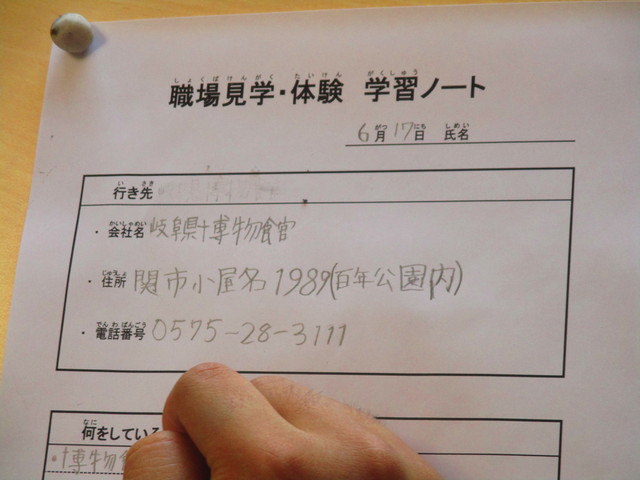 職場見学・体験 学習ノート
6月17日 氏名
行き先
・会社名 岐阜県博物館
・住所 関市小屋名1989(百年公園内)
・電話番号 0575-28-3111
何をしている
・博物